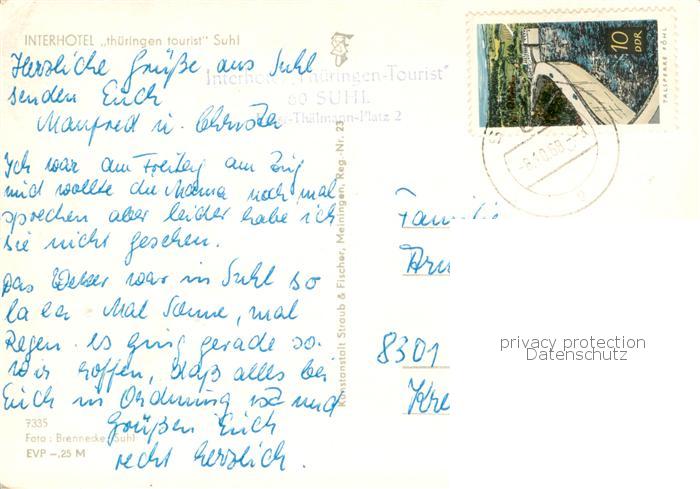 INTERHOTEL „thüringen tourist" Suhl
Herzliche Grüße aus Suhl
senden Euch
Manfred u.
Ich war am Freitag am Zug
und wollte die Mama noch mal
sprechen aber leider habe ich
sie nicht gesehen.
Das Wetter war in Suhl so
la la. Mal Sonne, mal
Regen. es ging gerade so.
Wir hoffen, daß alles bei
Euch in Ordnung ist und
Grüßen Euch
recht herzlich.
7335
Foto: Brennecke, Suhl
EVP –,25 M
Interhotel „Thüringen-Tourist"
60 SUHL
Ernst-Thälmann-Platz 2
Kunstanstalt Straub & Fischer, Meiningen, Reg.-Nr. 23
10
DDR
TALSPERRE PÖHL
Familie
8301
privacy protection
Datenschutz